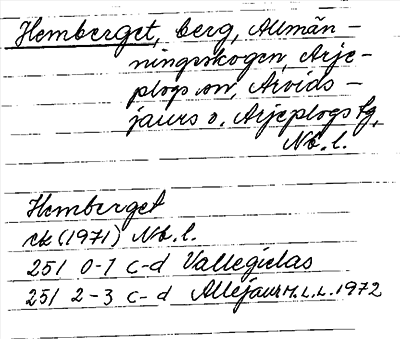 Hemberget, berg, Allmän-
ningsskogen, Arje-
plogs sn, Arvids-
jaurs o. Arjeplogs tg,
Nb. l.
Hemberget
ek (1971) Nb. l.
25I 0-1 c-d Vallegielas
25I 2-3 c-d Allejaur H.L.L. 1972